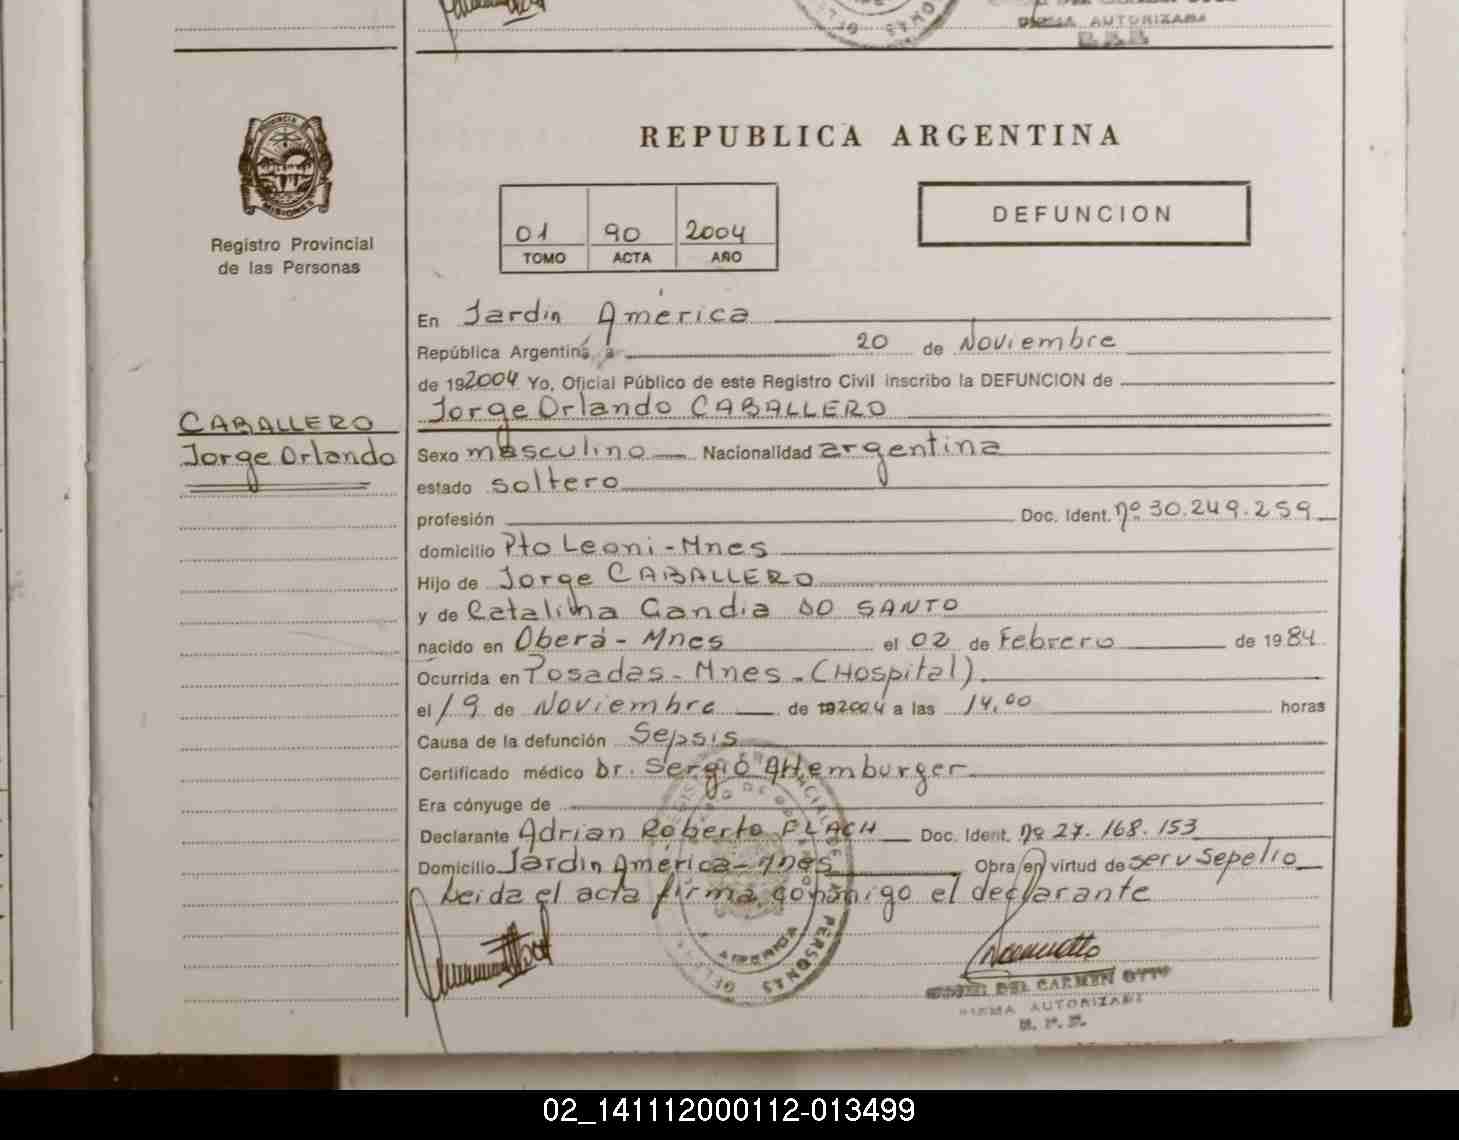 FIRMA AUTORIZADA
R.P.P.
PROVINCIA
MISIONES
Registro Provincial
de las Personas
REPUBLICA ARGENTINA
01 90 2004
TOMO ACTA AÑO
DEFUNCION
En Jardin América
República Argentina, a 20 de Noviembre
de 192004 Yo, Oficial Público de este Registro Civil inscribo la DEFUNCION de
CABALLERO
Jorge Orlando
Jorge Orlando CABALLERO
Sexo masculino Nacionalidad argentina
estado soltero
profesión Doc. Ident. nº 30.249.259
domicilio Pto Leoni - Mnes
Hijo de Jorge CABALLERO
y de Catalina Gandia DO SANTO
nacido en Oberá - Mnes el 02 de Febrero de 1984
Ocurrida en Posadas - Mnes - (Hospital)
el 19 de Noviembre de 192004 a las 14,00 horas
Causa de la defunción Sepsis
Certificado médico Dr. Sergio Attemburger
Era cónyuge de
Declarante Adrian Roberto FLACH Doc. Ident. nº 27.168.153
Domicilio Jardin América - Mnes Obra en virtud de serv Sepelio
Leida el acta firma conmigo el declarante
DEL CARMEN OTTO
FIRMA AUTORIZADA
R.P.P.
02_141112000112-013499